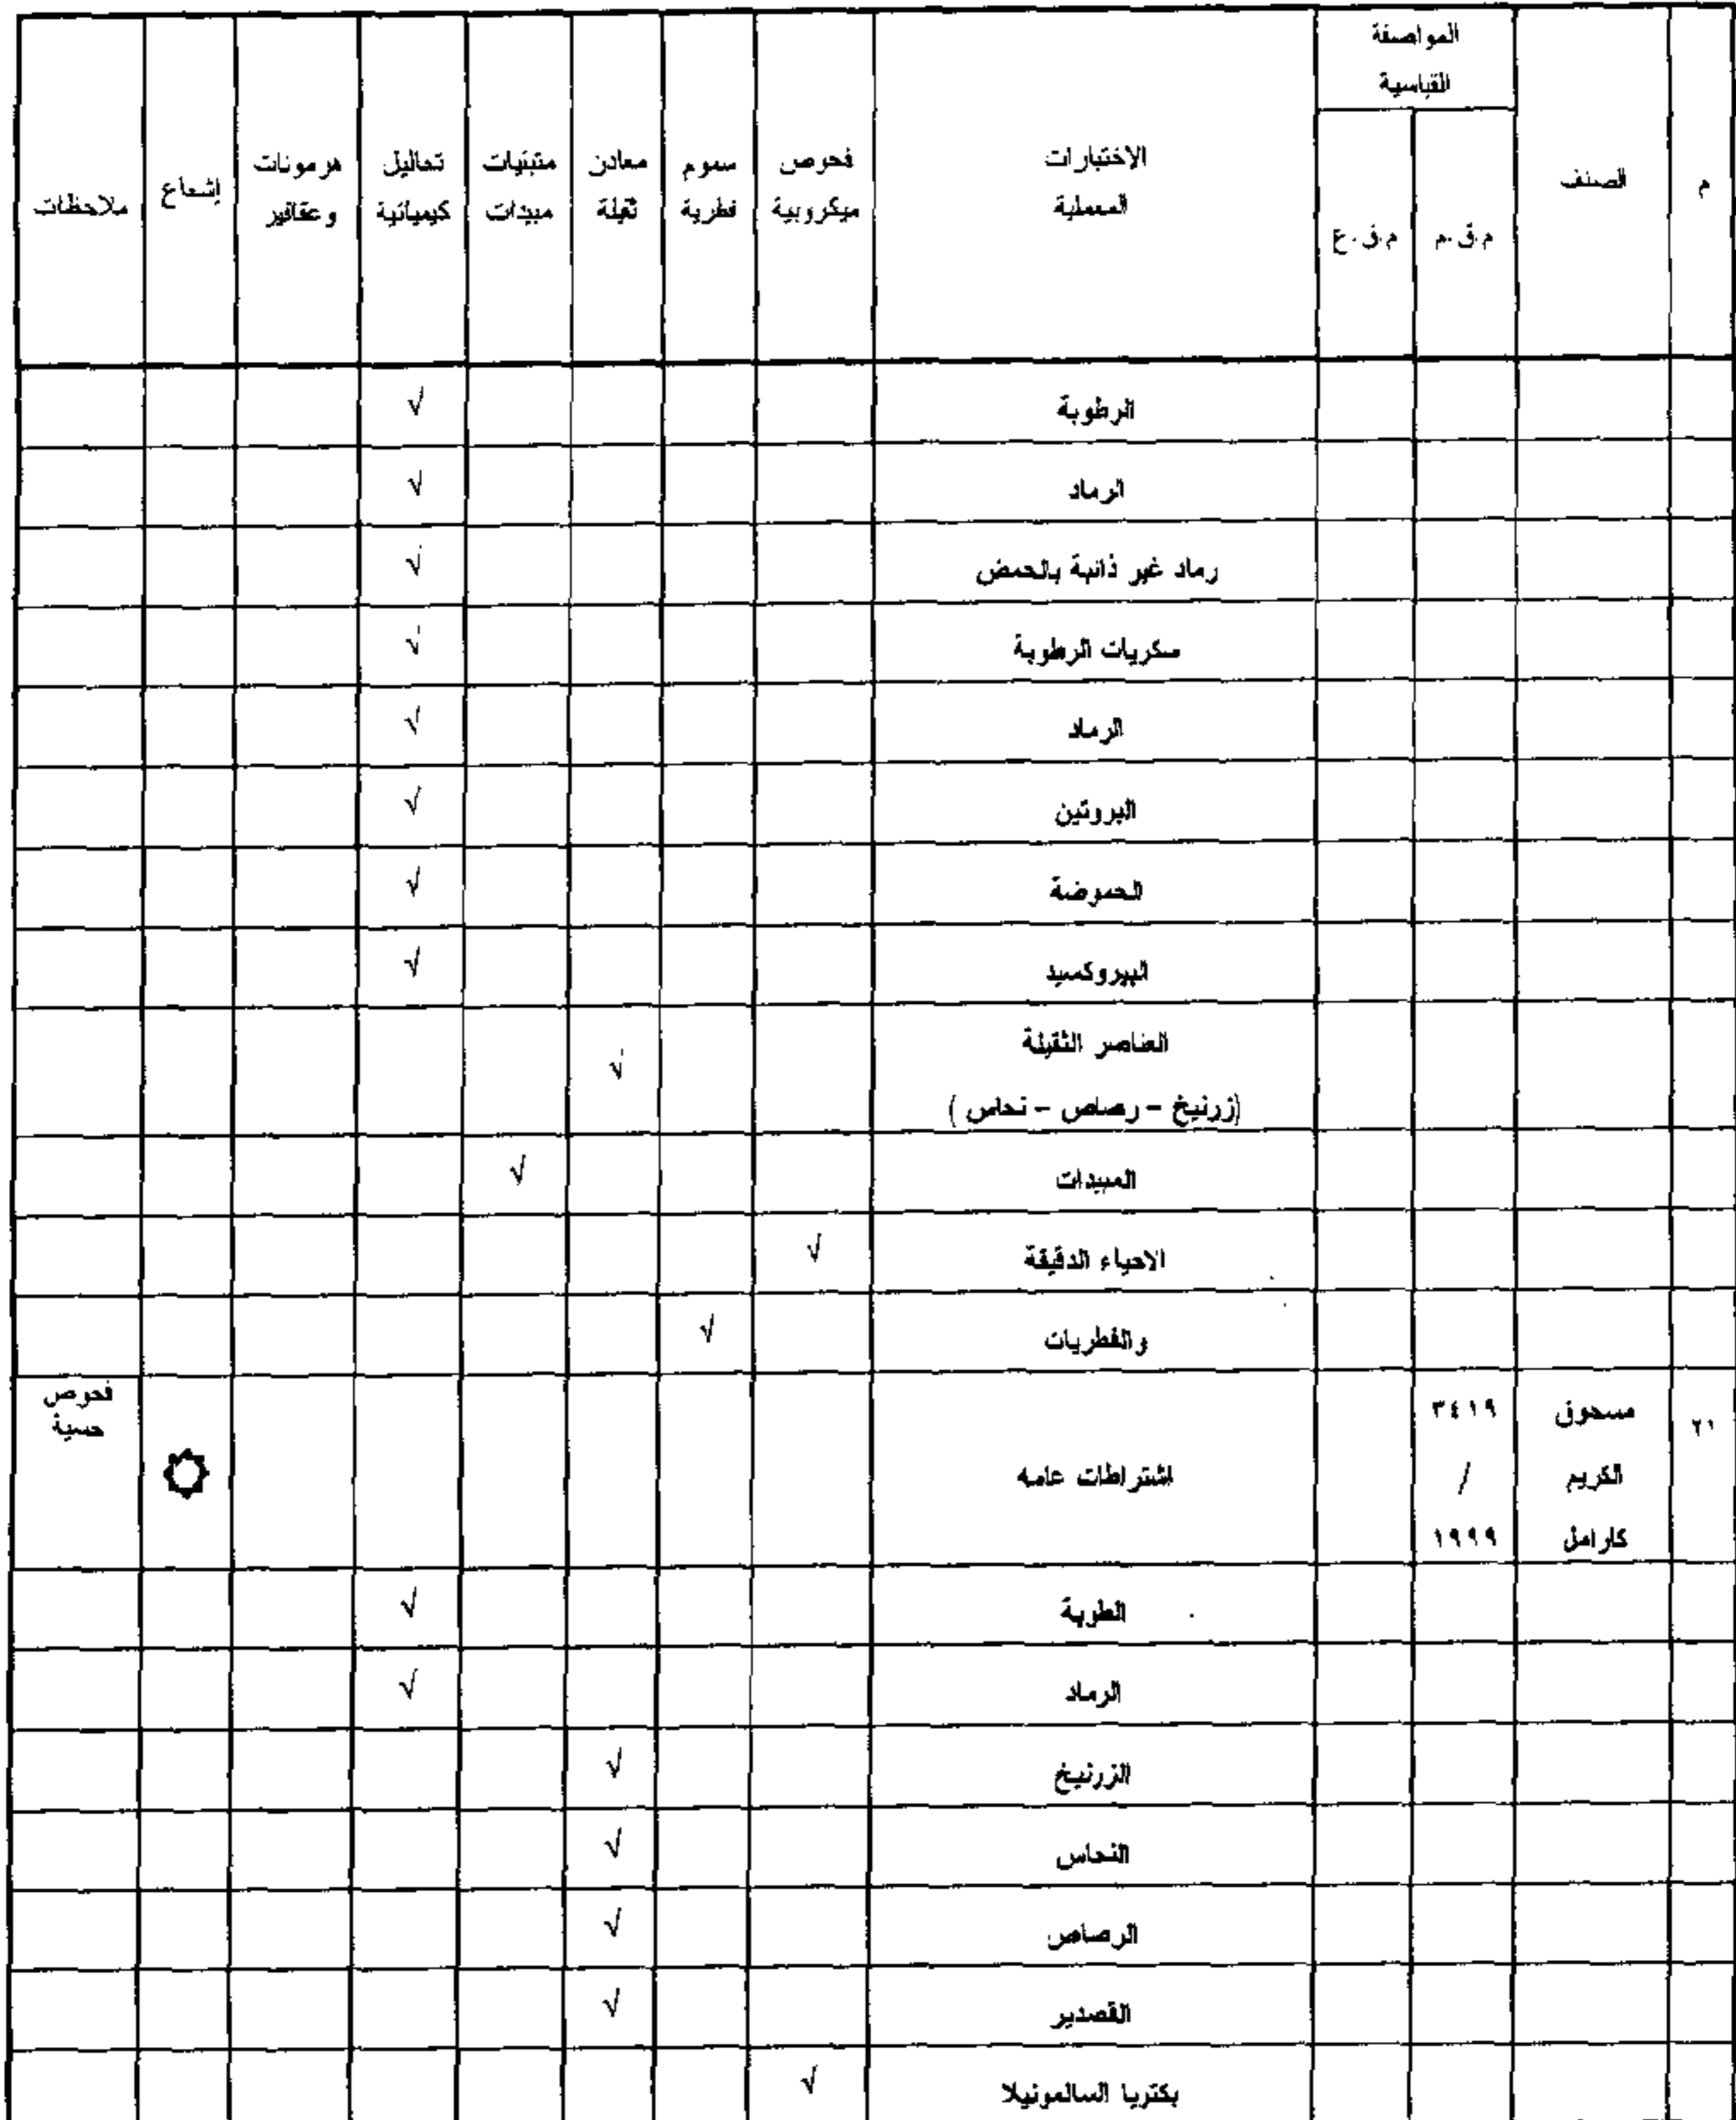 م
الصنف
المواصفة
القياسية
م.ق.م
م.ق.ع
الاختبارات
المعملية
فحوص
ميكروبية
سموم
فطرية
معادن
ثقيلة
متبقيات
مبيدات
تحاليل
كيميائية
هرمونات
وعقاقير
إشعاع
ملاحظات
الرطوبة √
الرماد √
رماد غير ذائبة بالحمض √
سكريات الرطوبة √
الرماد √
البروتين √
الحموضة √
البيروكسيد √
العناصر الثقيلة √
(زرنيخ – رصاص – نحاس )
المبيدات √
الاحياء الدقيقة √
والفطريات √
٢١
مسحوق
الكريم
كارامل
٣٤١٩
/
١٩٩٩
اشتراطات عامه
فحوص
حسية
الطوبة √
الرماد √
الزرنيخ √
النحاس √
الرصاص √
القصدير √
بكتريا السالمونيلا √